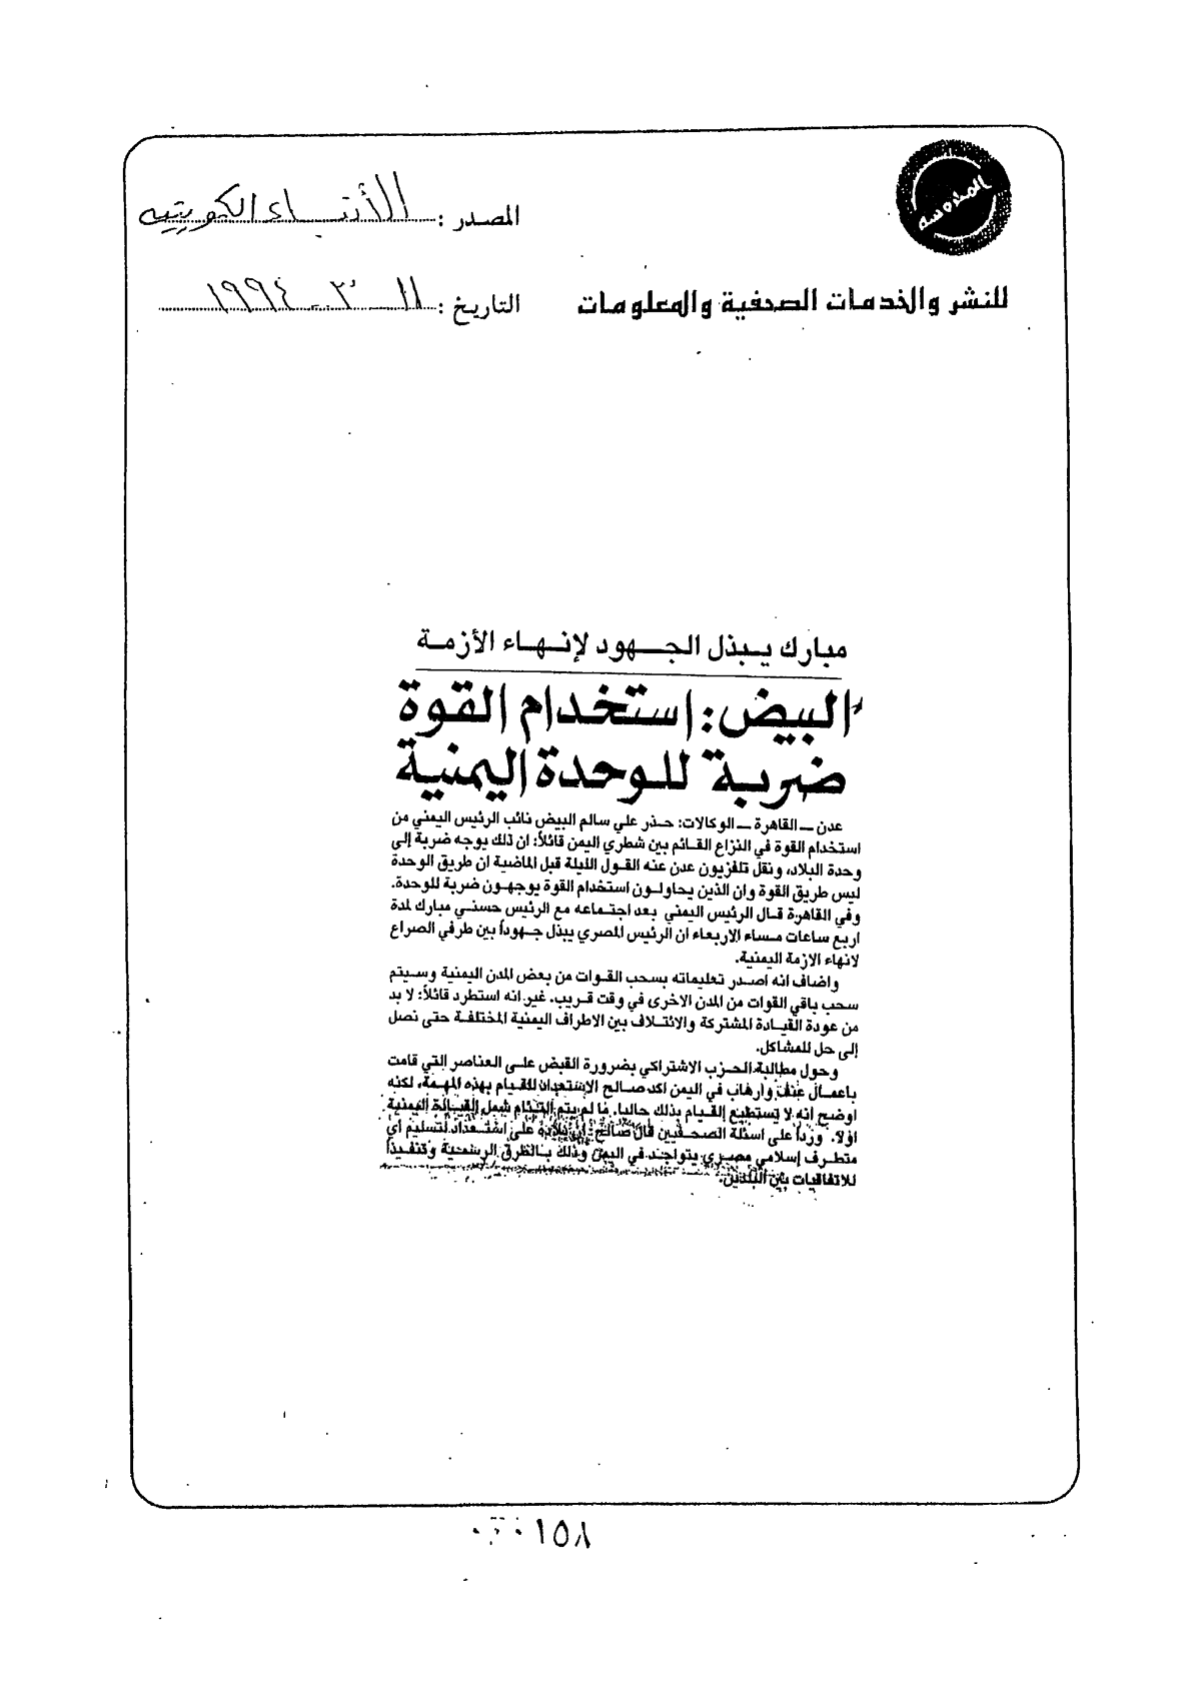 المصدر : الأنباء الكويتيه
للنشر والخدمات الصحفية والمعلومات
التاريخ : ١١ - ٣ - ١٩٩٤
مبارك يبذل الجهود لإنهاء الأزمة
البيض: استخدام القوة
ضربة للوحدة اليمنية
عدن ـ القاهرة ـ الوكالات: حذر علي سالم البيض نائب الرئيس اليمني من
استخدام القوة في النزاع القائم بين شطري اليمن قائلاً: ان ذلك يوجه ضربة إلى
وحدة البلاد، ونقل تلفزيون عدن عنه القول الليلة قبل الماضية ان طريق الوحدة
ليس طريق القوة وان الذين يحاولون استخدام القوة يوجهون ضربة للوحدة.
وفي القاهرة قال الرئيس اليمني بعد اجتماعه مع الرئيس حسني مبارك لمدة
اربع ساعات مساء الاربعاء ان الرئيس المصري يبذل جهوداً بين طرفي الصراع
لانهاء الازمة اليمنية.
واضاف انه اصدر تعليماته بسحب القوات من بعض المدن اليمنية وسيتم
سحب باقي القوات من المدن الاخرى في وقت قريب. غير انه استطرد قائلاً: لا بد
من عودة القيادة المشتركة والائتلاف بين الاطراف اليمنية المختلفة حتى نصل
إلى حل للمشاكل.
وحول مطالبة الحزب الاشتراكي بضرورة القبض على العناصر التي قامت
باعمال عنف وارهاب في اليمن اكد صالح الاستعداد للقيام بهذه المهمة، لكنه
اوضح انه لا يستطيع القيام بذلك حاليا، ما لم يتم التئام شمل القيادة اليمنية
اولا. ورداً على اسئلة الصحفيين قال صالح: ان بلاده على استعداد لتسليم اي
متطرف إسلامي مصري يتواجد في اليمن وذلك بالطرق الرسمية وتنفيذاً
للاتفاقيات بين البلدين.
١٥٨